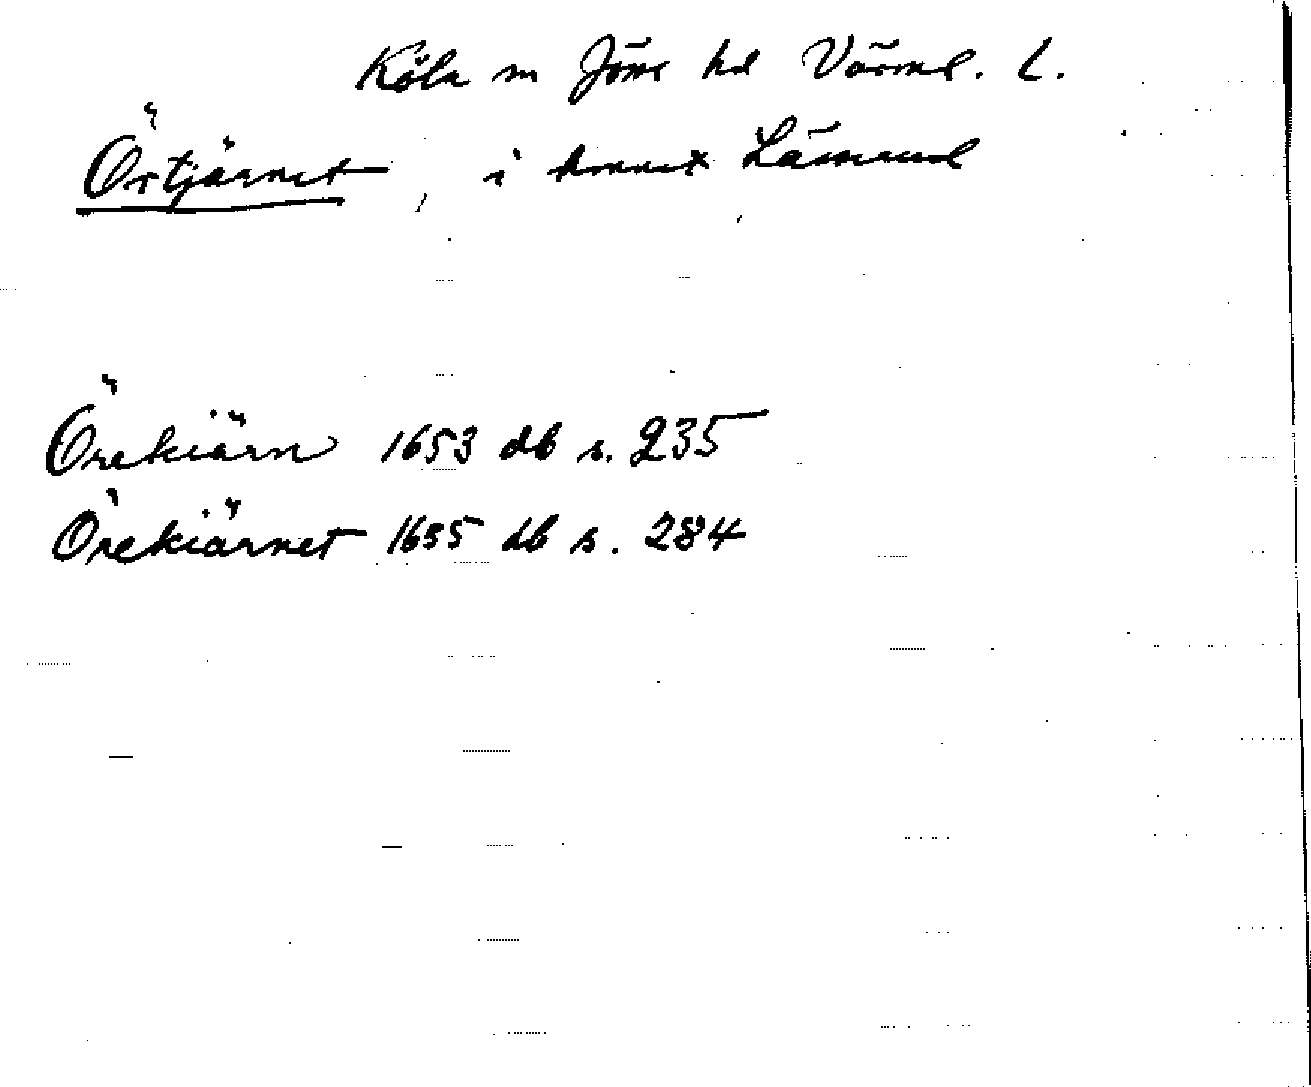 Köla sn Jöss hd Värml. L.
Örtjärnet, i hemmet Lässerud
Örekiärn 1653 db s. 235
Örekiärnet 1655 db s. 284